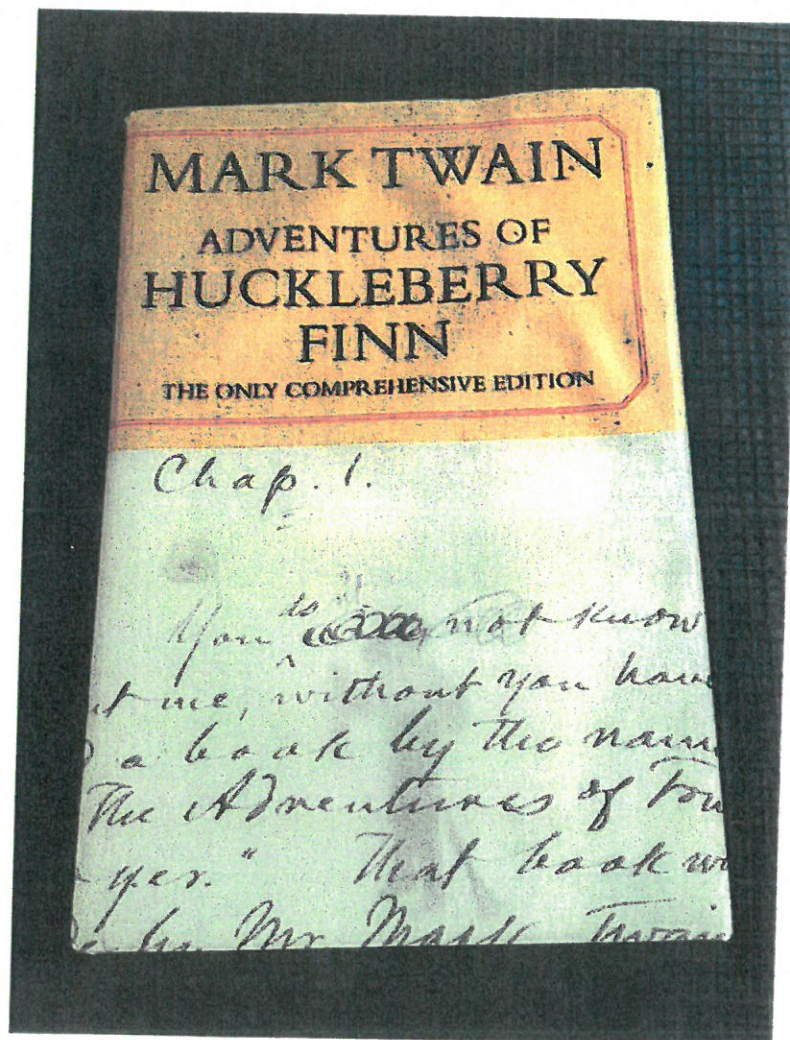 MARK TWAIN
ADVENTURES OF
HUCKLEBERRY
FINN
THE ONLY COMPREHENSIVE EDITION
Chap. 1.
do
You not know
t me, without you have
a book by the name
The Adventures of Tom
yer." That book w
by Mr Mark Twain